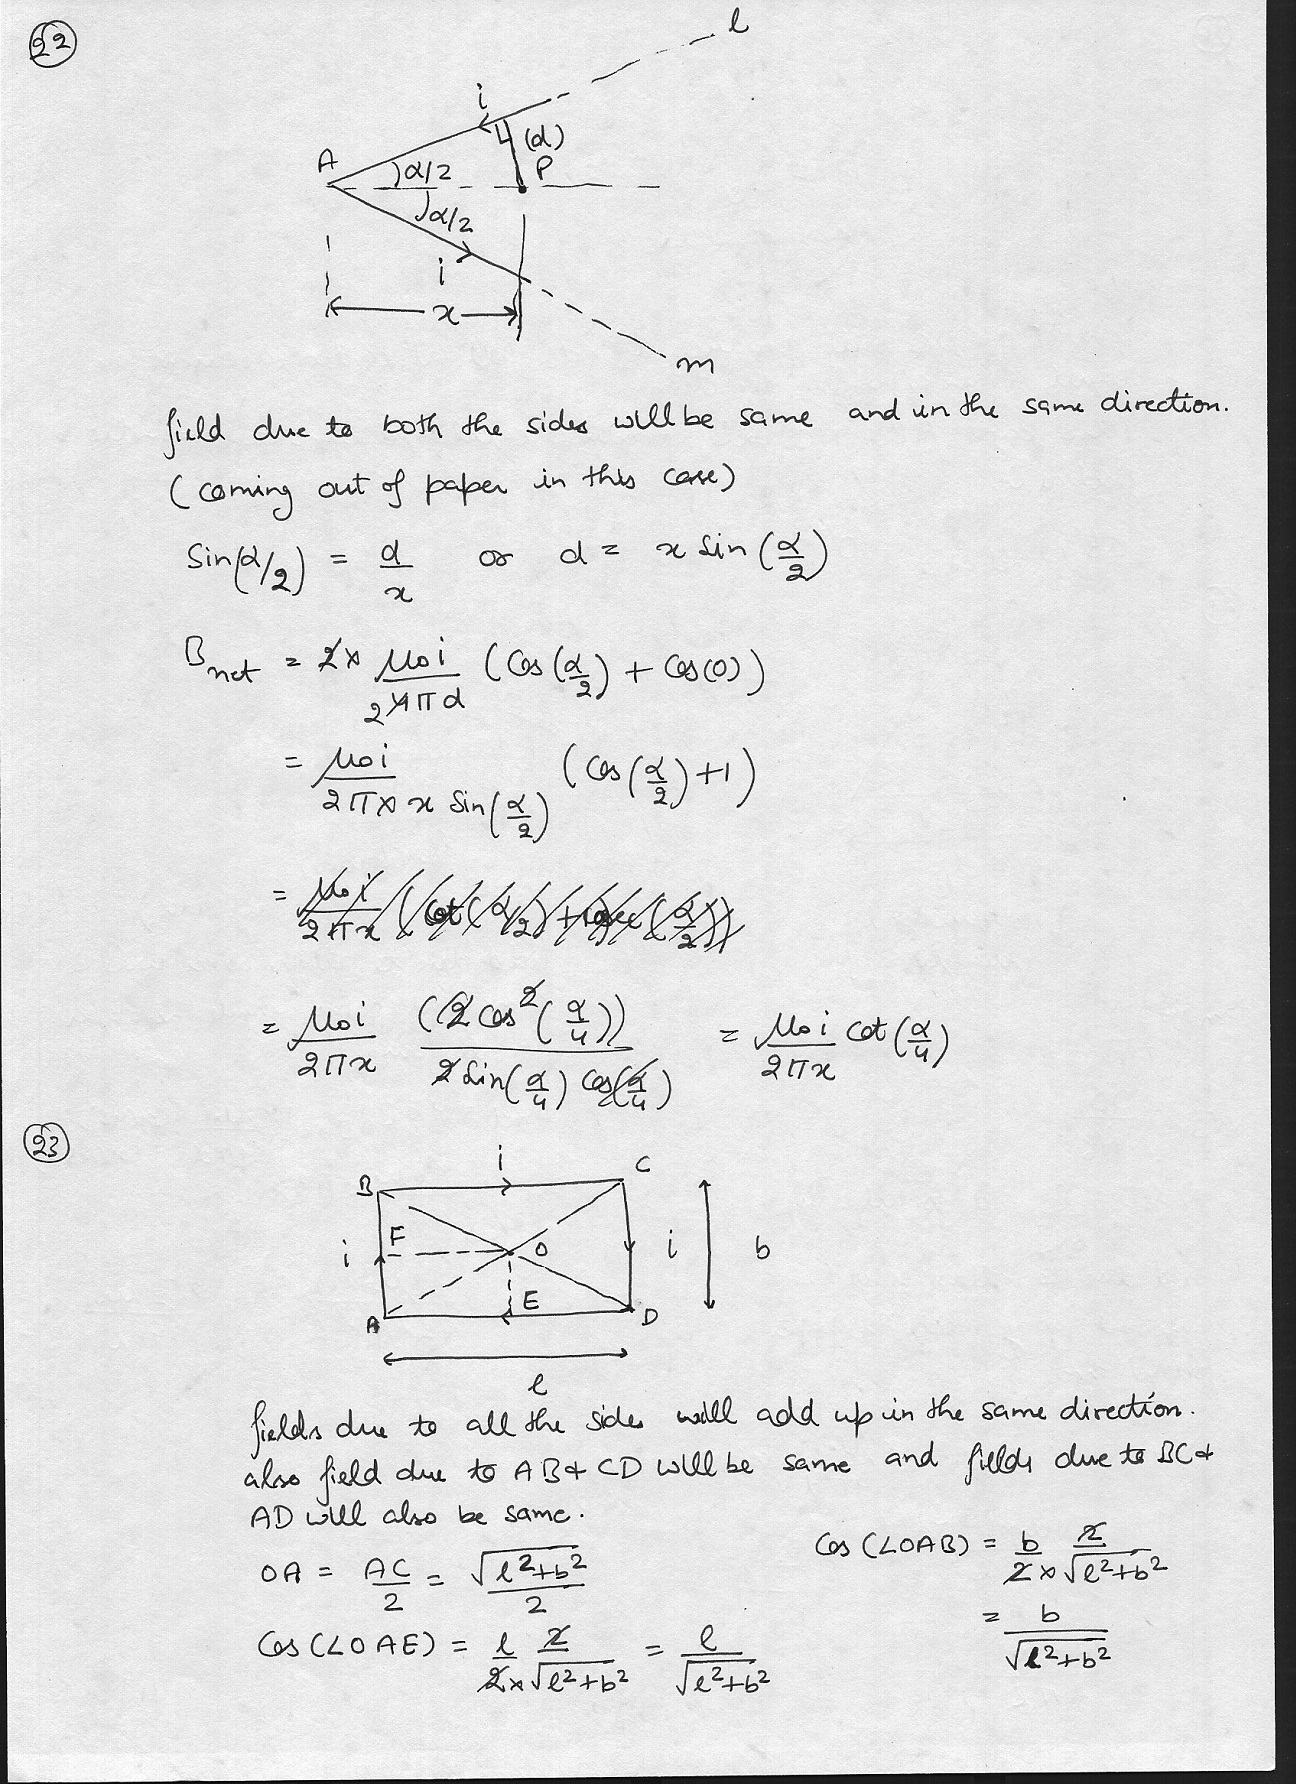 22
l
i
(d)
A
P
α/2
α/2
i
x
m
field due to both the sides will be same and in the same direction.
(coming out of paper in this case)
Sin(α/2) = d/x or d = x sin(α/2)
Bnet = 2 × μ₀i/2 4πd (Cos(α/2) + Cos(0))
= μ₀i/2π × x Sin(α/2) (Cos(α/2) + 1)
= μ₀i/2πx (Cot(α/2) + Cosec(α/2))
= μ₀i/2πx (2 Cos²(α/4))/2 Sin(α/4) Cos(α/4) = μ₀i/2πx Cot(α/4)
23
i
B C
F
i O i b
E
A D
l
fields due to all the sides will add up in the same direction.
also field due to AB & CD will be same and fields due to BC &
AD will also be same.
OA = AC/2 = √(l²+b²)/2
Cos(∠OAB) = b/2 × 2/√(l²+b²)
= b/√(l²+b²)
Cos(∠OAE) = l/2 × 2/√(l²+b²) = l/√(l²+b²)